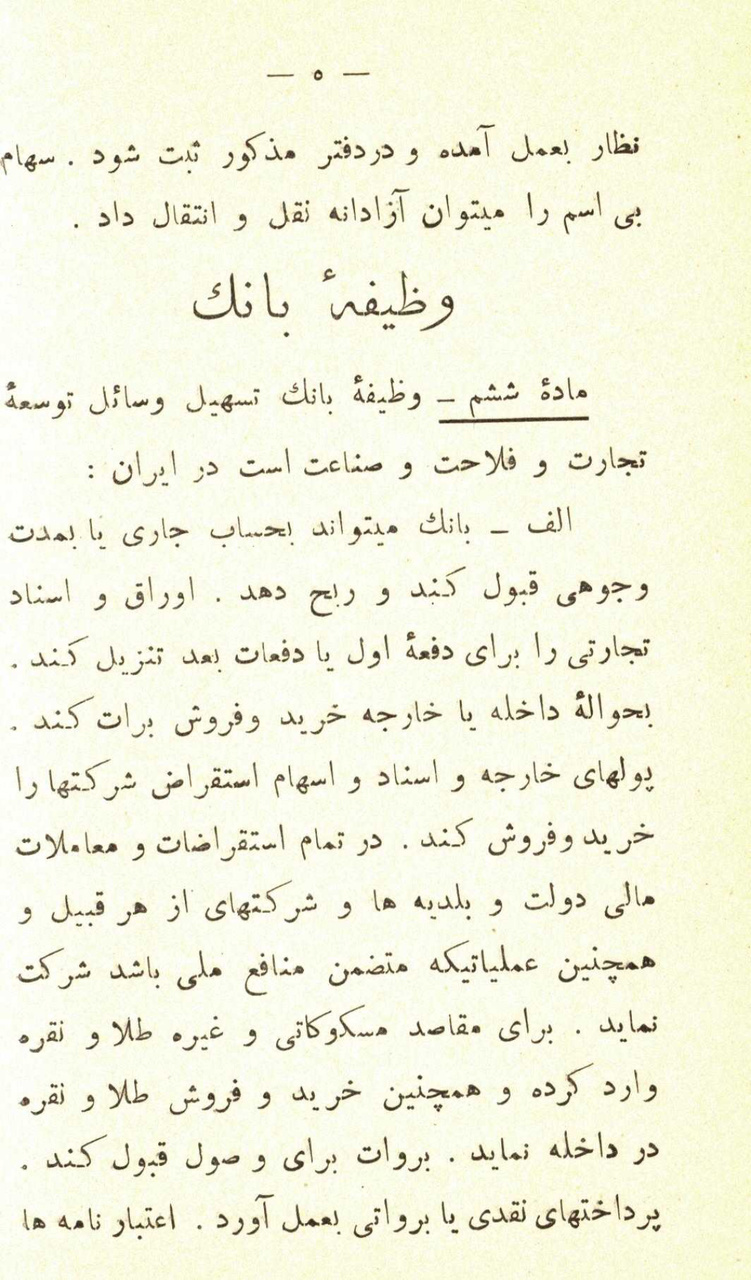 — ٥ —
نظار بعمل آمده و دردفتر مذکور ثبت شود . سهام
بی اسم را میتوان آزادانه نقل و انتقال داد .
وظیفهٔ بانك
مادهٔ ششم – وظیفهٔ بانك تسهیل وسائل توسعهٔ
تجارت و فلاحت و صناعت است در ایران :
الف – بانك میتواند بحساب جاری یا بمدت
وجوهی قبول کند و ربح دهد . اوراق و اسناد
تجارتی را برای دفعهٔ اول یا دفعات بعد تنزیل کند .
بحوالهٔ داخله یا خارجه خرید وفروش برات کند .
پولهای خارجه و اسناد و اسهام استقراض شرکتها را
خرید وفروش کند . در تمام استقراضات و معاملات
مالی دولت و بلدیه ها و شرکتهای از هر قبیل و
همچنین عملیاتیکه متضمن منافع ملی باشد شرکت
نماید . برای مقاصد مسکوکاتی و غیره طلا و نقره
وارد کرده و همچنین خرید و فروش طلا و نقره
در داخله نماید . بروات برای و صول قبول کند .
پرداختهای نقدی یا برواتی بعمل آورد . اعتبار نامه ها